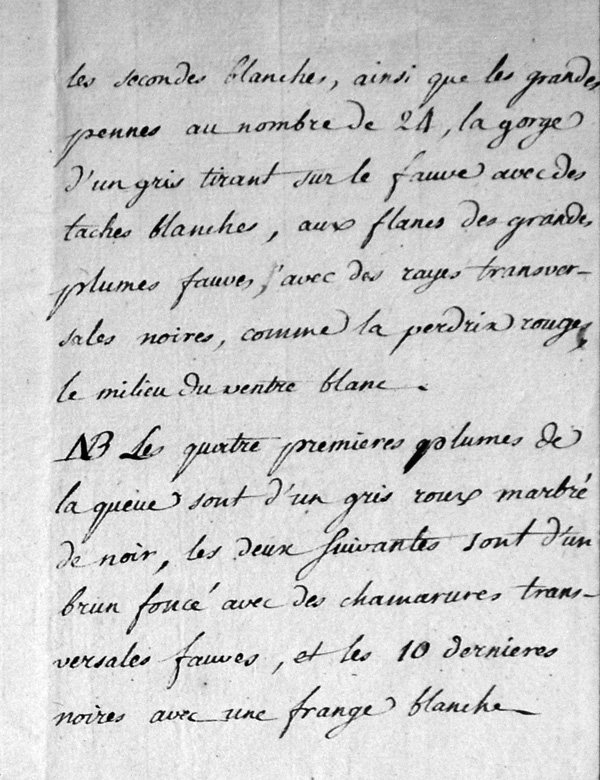 les secondes blanches, ainsi que les grandes
pennes au nombre de 24, la gorge
d'un gris tirant sur le fauve avec des
taches blanches, aux flancs des grandes
plumes fauves, avec des rayes transver-
sales noires, comme la perdrix rouge,
le milieu du ventre blanc.
NB Les quatre premieres plumes de
la queue sont d'un gris roux marbré
de noir, les deux suivantes sont d'un
brun foncé avec des chamarures trans-
versales fauves, et les 10 dernieres
noires avec une frange blanche